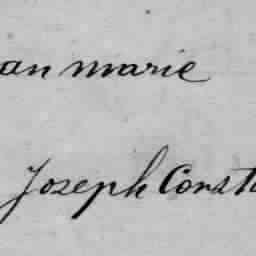 an marie
Joseph Const